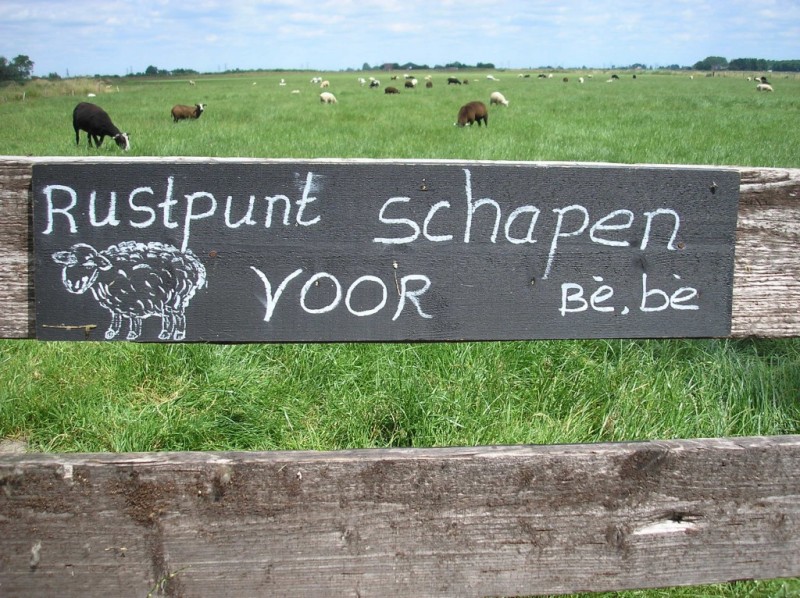 Rustpunt schapen
voor Bè, bè